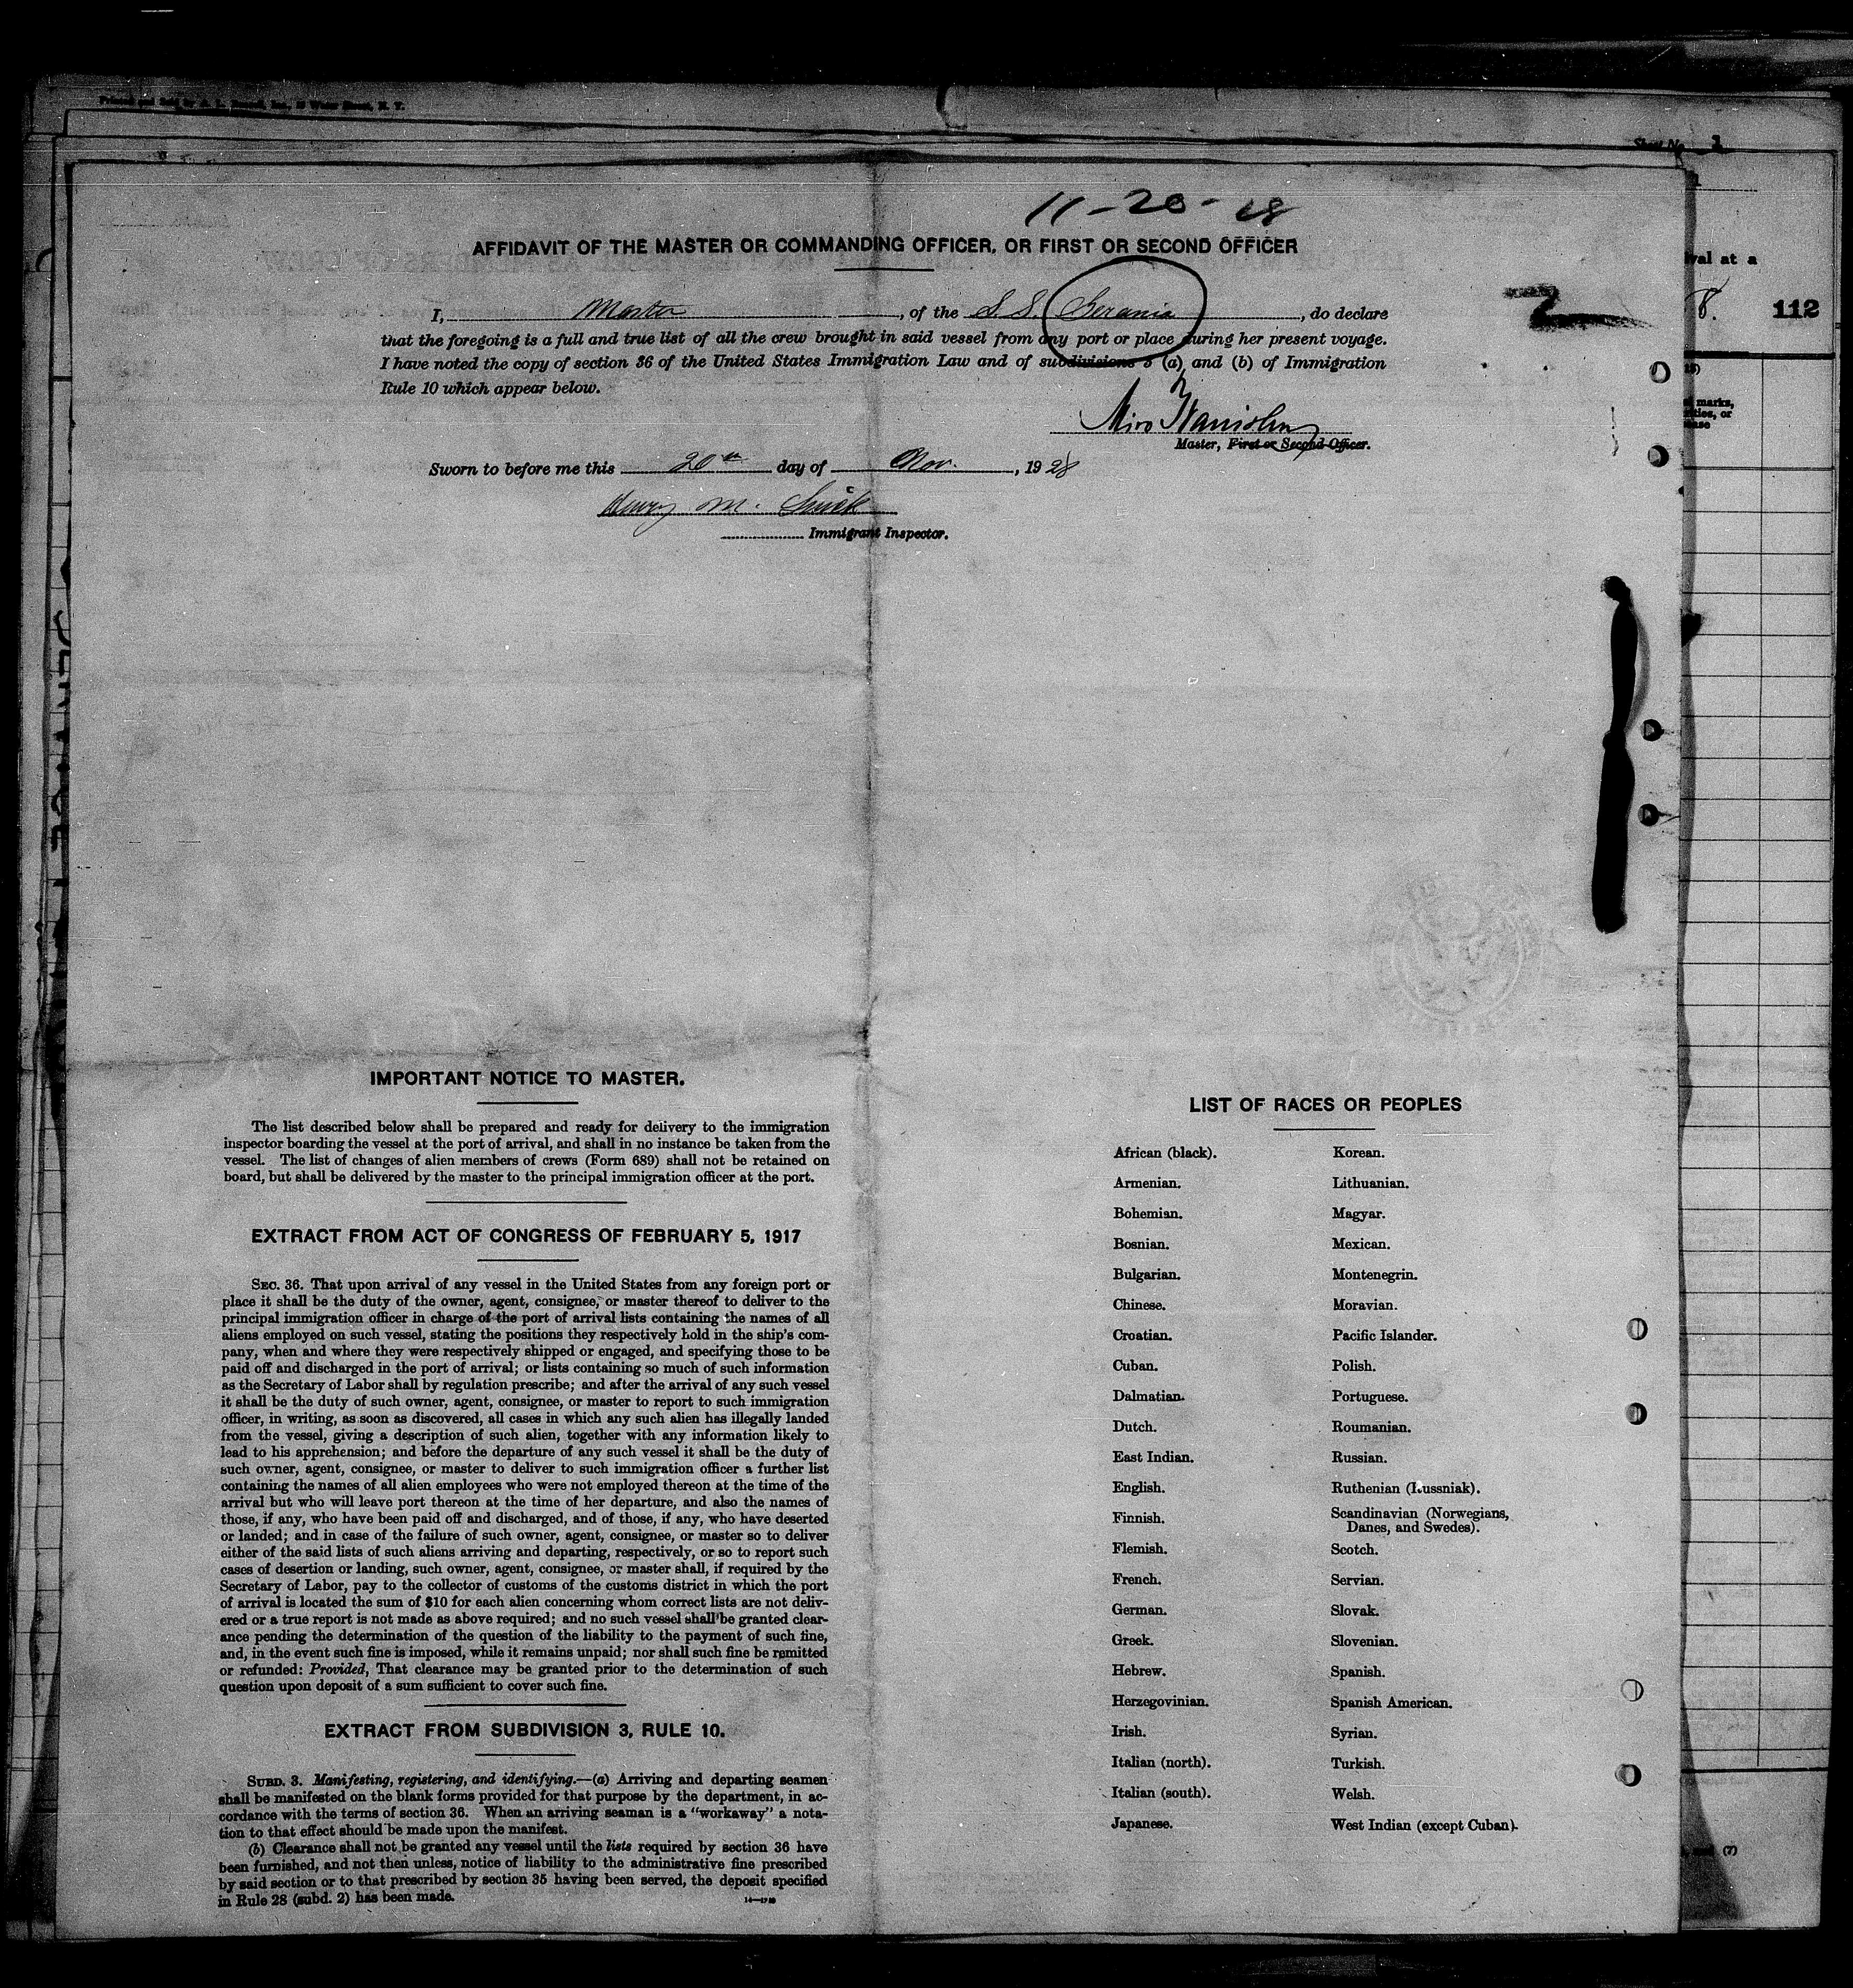 Sheet No. 2
11-20-28
AFFIDAVIT OF THE MASTER OR COMMANDING OFFICER, OR FIRST OR SECOND OFFICER
I, Master, of the S.S. Serania, do declare
that the foregoing is a full and true list of all the crew brought in said vessel from any port or place during her present voyage.
I have noted the copy of section 36 of the United States Immigration Law and of subdivisions 3 (a) and (b) of Immigration
Rule 10 which appear below.
Master, First or Second Officer.
Sworn to before me this 20th day of Nov., 1928
Henry M.
Immigrant Inspector.
val at a
8. 112
marks,
or
2
IMPORTANT NOTICE TO MASTER.
The list described below shall be prepared and ready for delivery to the immigration
inspector boarding the vessel at the port of arrival, and shall in no instance be taken from the
vessel. The list of changes of alien members of crews (Form 689) shall not be retained on
board, but shall be delivered by the master to the principal immigration officer at the port.
EXTRACT FROM ACT OF CONGRESS OF FEBRUARY 5, 1917
SEC. 36. That upon arrival of any vessel in the United States from any foreign port or
place it shall be the duty of the owner, agent, consignee, or master thereof to deliver to the
principal immigration officer in charge of the port of arrival lists containing the names of all
aliens employed on such vessel, stating the positions they respectively hold in the ship's com-
pany, when and where they were respectively shipped or engaged, and specifying those to be
paid off and discharged in the port of arrival; or lists containing so much of such information
as the Secretary of Labor shall by regulation prescribe; and after the arrival of any such vessel
it shall be the duty of such owner, agent, consignee, or master to report to such immigration
officer, in writing, as soon as discovered, all cases in which any such alien has illegally landed
from the vessel, giving a description of such alien, together with any information likely to
lead to his apprehension; and before the departure of any such vessel it shall be the duty of
such owner, agent, consignee, or master to deliver to such immigration officer a further list
containing the names of all alien employees who were not employed thereon at the time of the
arrival but who will leave port thereon at the time of her departure, and also the names of
those, if any, who have been paid off and discharged, and of those, if any, who have deserted
or landed; and in case of the failure of such owner, agent, consignee, or master so to deliver
either of the said lists of such aliens arriving and departing, respectively, or so to report such
cases of desertion or landing, such owner, agent, consignee, or master shall, if required by the
Secretary of Labor, pay to the collector of customs of the customs district in which the port
of arrival is located the sum of $10 for each alien concerning whom correct lists are not deliv-
ered or a true report is not made as above required; and no such vessel shall be granted clear-
ance pending the determination of the question of the liability to the payment of such fine,
and, in the event such fine is imposed, while it remains unpaid; nor shall such fine be remitted
or refunded: Provided, That clearance may be granted prior to the determination of such
question upon deposit of a sum sufficient to cover such fine.
EXTRACT FROM SUBDIVISION 3, RULE 10.
SUBD. 3. Manifesting, registering, and identifying.—(a) Arriving and departing seamen
shall be manifested on the blank forms provided for that purpose by the department, in ac-
cordance with the terms of section 36. When an arriving seaman is a "workaway" a nota-
tion to that effect should be made upon the manifest.
(b) Clearance shall not be granted any vessel until the lists required by section 36 have
been furnished, and not then unless, notice of liability to the administrative fine prescribed
by said section or to that prescribed by section 35 having been served, the deposit specified
in Rule 28 (subd. 2) has been made.
LIST OF RACES OR PEOPLES
African (black).
Armenian.
Bohemian.
Bosnian.
Bulgarian.
Chinese.
Croatian.
Cuban.
Dalmatian.
Dutch.
East Indian.
English.
Finnish.
Flemish.
French.
German.
Greek.
Hebrew.
Herzegovinian.
Irish.
Italian (north).
Italian (south).
Japanese.
Korean.
Lithuanian.
Magyar.
Mexican.
Montenegrin.
Moravian.
Pacific Islander.
Polish.
Portuguese.
Roumanian.
Russian.
Ruthenian (Russniak).
Scandinavian (Norwegians,
Danes, and Swedes).
Scotch.
Servian.
Slovak.
Slovenian.
Spanish.
Spanish American.
Syrian.
Turkish.
Welsh.
West Indian (except Cuban).
(7)